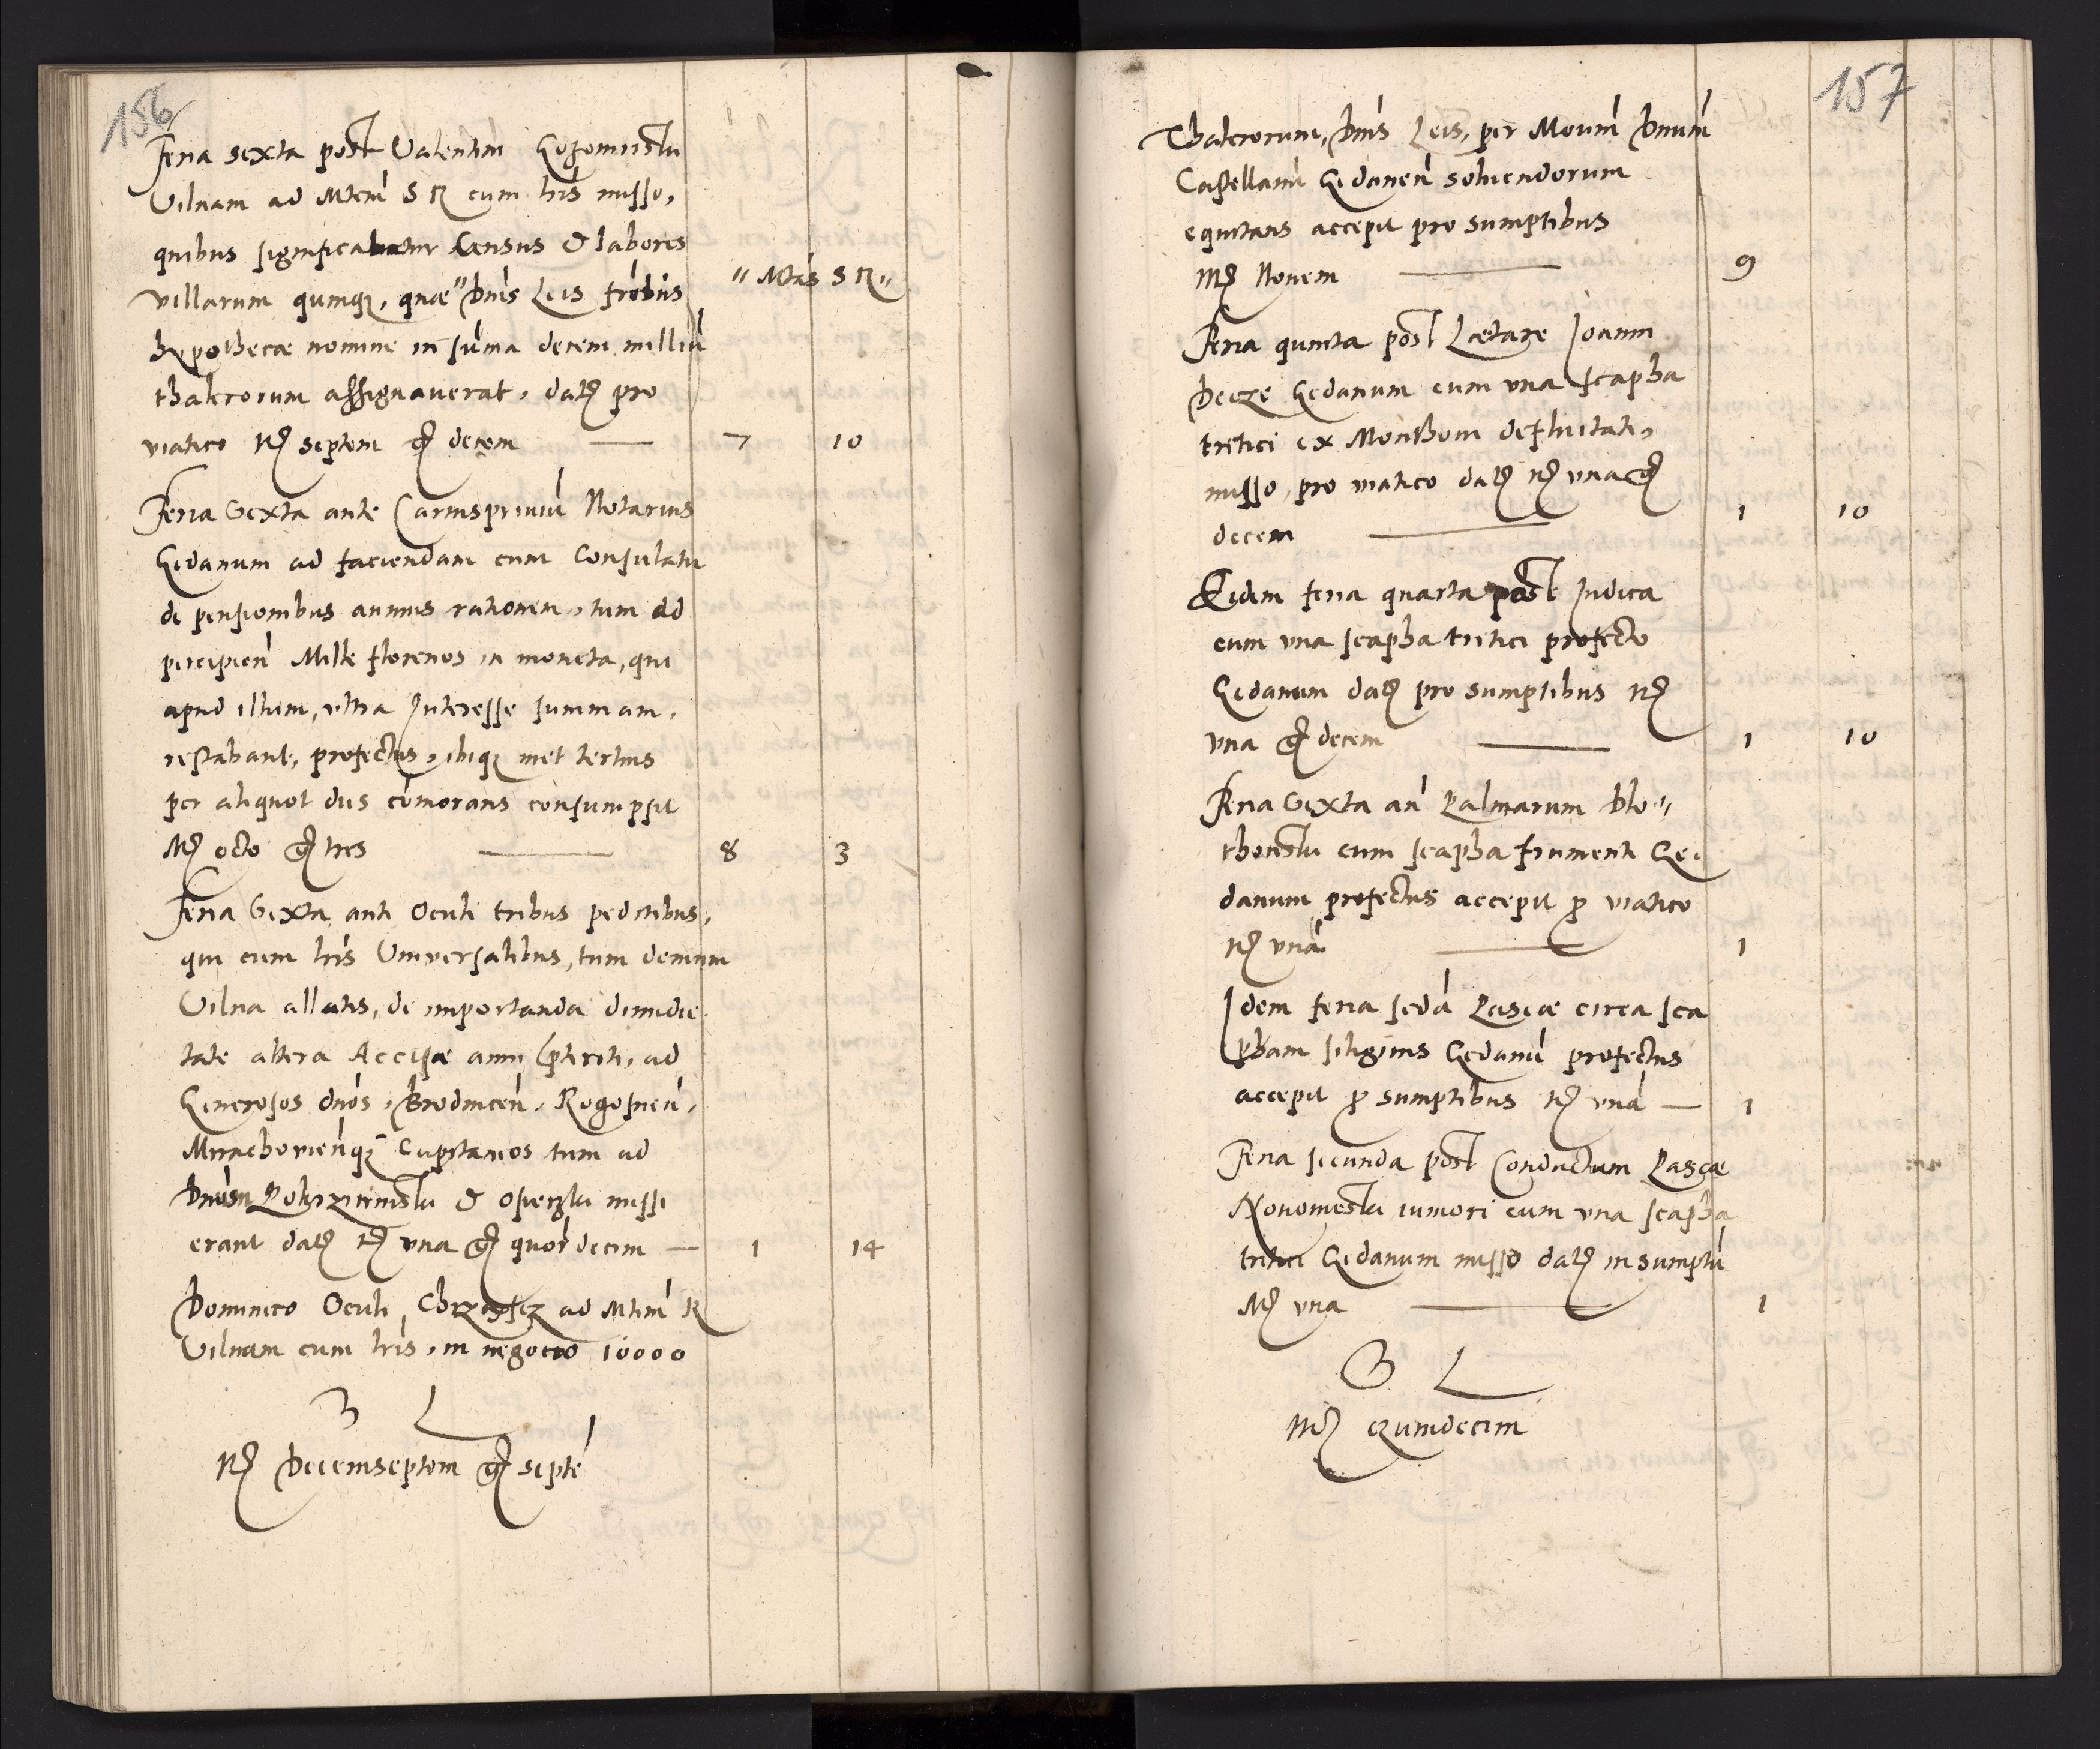 156
Feria sexta post Valentini Gozomiistu
Vilnam ad Mtem S R cum lris misso,
quibus significabatur Census & labores
villarum quinqz, quae" Dnis Leis frobiis
"Mtas S R"
hypothecae nomine in suma decem milliu
thalerorum assignaverat, datz pro
viatico Mz septem gz decem — 7 10
Feria Sexta ante Carnispriviu Notarius
Gedanum ad faciendam cum Consulatu
de pensionibus annuis rationem, tum ad
percipien Mille florenos in moneta, qui
apud illum, ultra Interesse summam,
restabant, profectus, ibiqz met tertius
per aliquot dies comorans consumpsit
Mz octo gz tres — 8 3
Feria Sexta ante Oculi tribus peditibus,
qui cum lris Universalibus, tum demum
Vilna allatis, de importanda dimidie
tate altera Accisae anni pteriti, ad
Generosos dnos, Brodnicen, Rogosnen,
Mirachovienqz Capitaneos tum ad
Dnum Pokrziwnistu & Osiecztu missi
erant datz Mz una gz quor decim — 1 14
Dominico Oculi Chrzastcz ad Mtem R
Vilnam cum lris, in negocio 10000
3 L
Mz Decemseptem gz septe
157
Thalerorum, Dnis Leis, per Moum Dnum
Castellanu Gedanen solvendorum
equitans accepit pro sumptibus
Mz Novem — 9
Feria quinta post Laetare Joanni
Decze Gedanum cum una scapha
tritici ex Monthovi defluitati,
misso, pro viatico datz Mz una gz
decem — 1 10
Eidem feria quarta post Judica
cum una scapha tritici profecto
Gedanum datz pro sumptibus Mz
una gz decem — 1 10
Feria Sexta an Palmarum Blo"
thonstu cum scapha frumenti Ge
danum profectus accepit p viatico
Mz una — 1
Idem feria seda Pascae circa sca
pham siliginis Gedanu profectus
accepit p sumptibus Mz una — 1
Feria secunda post Conductum Pascae
Novomestu iuniori cum una scapha
tritici Gedanum misso datz in sumptu
Mz una — 1
3 L
Mz Quindecim